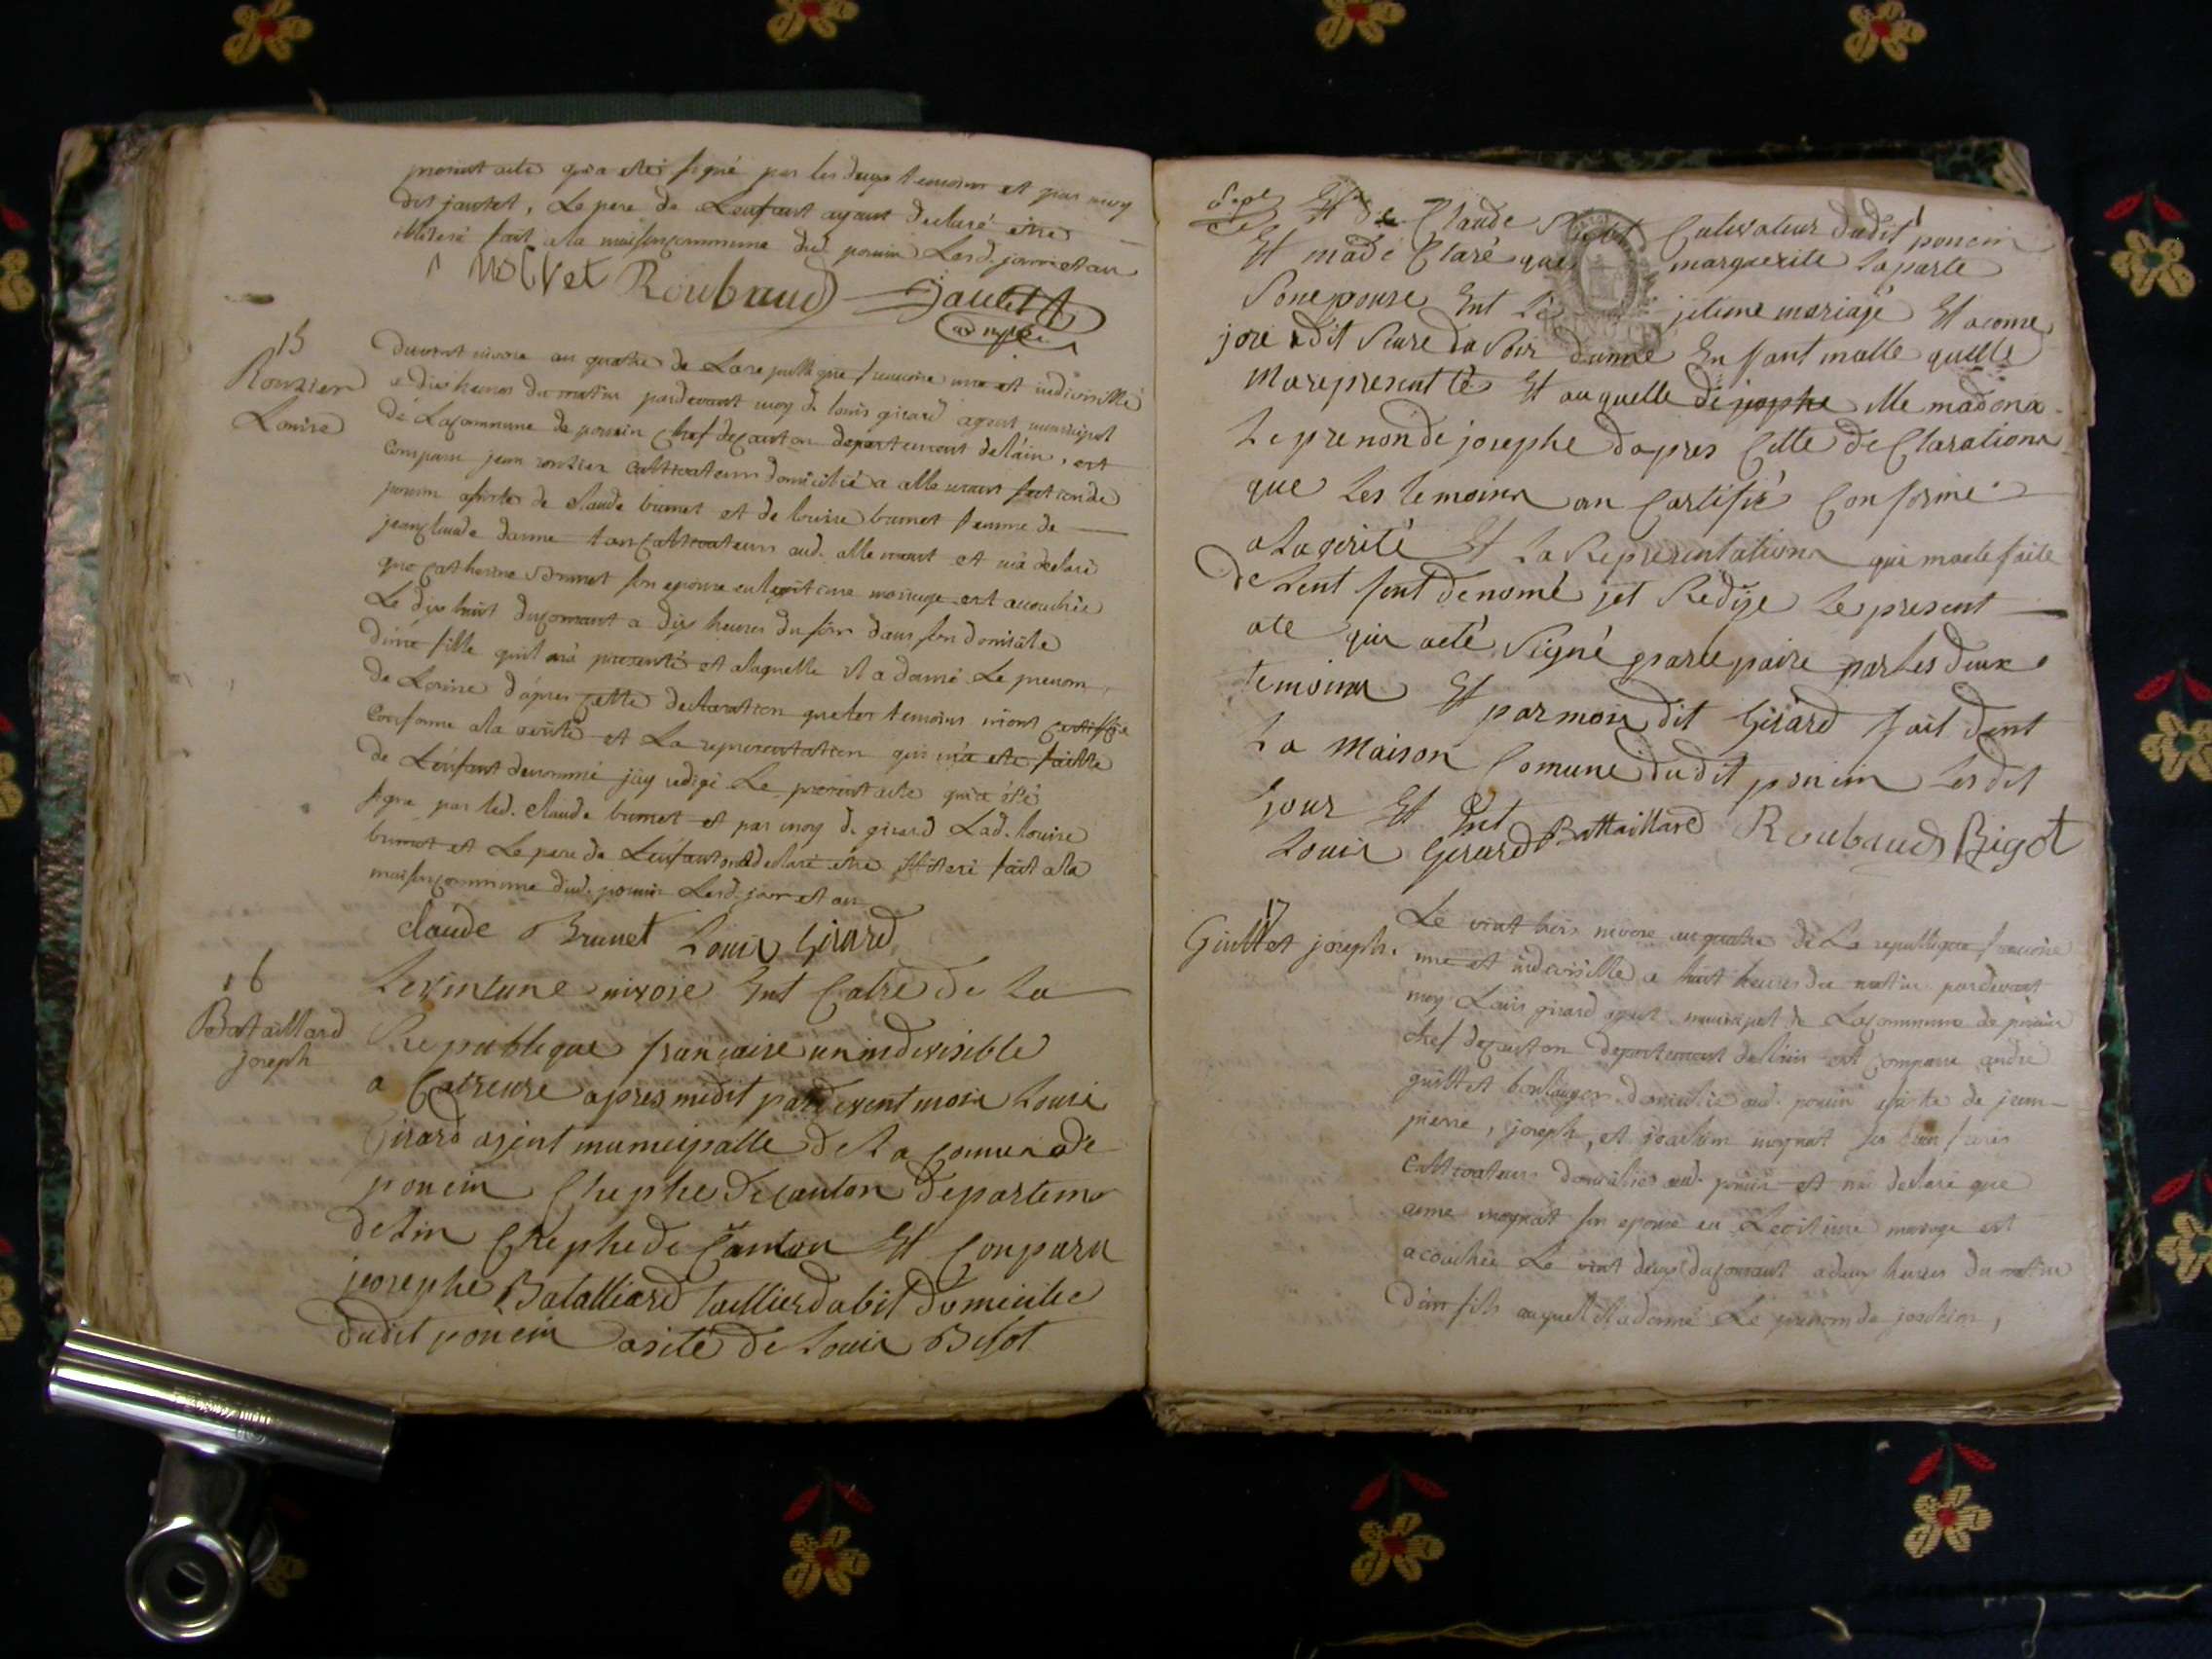 present acte qui a eté signé par les deux temoins et par moy
dit jantet, Le pere de Lenfant ayant declaré etre
illiteré fait ala maison commune dud. poncin Lesd. jour et an
Roubaud Jantet
adjoint
15
Rouzier
Louise
Duvint nivose an quatre de La republique francoise une et indivisible
a dix heures du matin pardevant moy d. louis girard agent municipal
de La commune de poncin chef de canton departement de lain, est
comparu jean rouzier cultivateur domicilié a allement section de
poncin assisté de claude brunet et de louise brunet femme de
jean claude cultivateurs aud. allement et m'a declaré
que catherine brunet son epouse en legitime mariage est accouchée
Le dix huit du courant a dix heures du soir dans son domicile
d'une fille qu'il m'a presenté et alaquelle il a donné Le prenom
de Louise d'apres cette declaration que les temoins m'ont certiffié
conforme ala verité et La representation qui m'a eté faitte
de Lenfant denommé j'ay redigé Le present acte qui a été
signé par led. claude brunet et par moy d. girard Lad. louise
brunet et Le pere de Lenfant ont declaré etre illiteré fait ala
maison commune dud. poncin Lesd. jour et an
claude Brunet Louis Girard
16
Bataillard
joseph
Levintune nivose Ent Catre de La
Republique francaise un indivisible
a Catreure apres midit pardevent moir Louis
Girard agent municipalle de La comune de
poncin Chephe de canton departeme
delin Chephe de Canton Et Conparu
jeosephe Batalliard tallierdabit domicilie
dudit poncin asité de Louis Bigot
Et de Claude Cultivateur dudit poncin
Et made Claré que marguerite Laparte
Sonepouse Ent Le jetime mariage Et acome
jore adit Eure du Soir dunne Enfant malle quelle
marepresenté Et auquelle de josephe ille madona
Le prenon de josephe dapres Cette de Claration
que Les temoins an Certifié Conforme
a Laverité Et La Representation qui maete faite
de Lent fent denomé jet Redige Le present
ate qui aeté Signé par les deux
temoins Et par moir dit Girard fait dent
La maison Comune dudit poncin Lesdit
jour Et Ent
Louis Girard Battaillard Roubaud Bigot
17
Guillet joseph.
Le vint trois nivose an quatre de La republique francoise
une et indivisible a huit heures du matin pardevant
moy Louis girard agent municipal de La commune de poncin
chef de canton departement de lain est comparu andré
guillet boulanger domicilié aud. poncin assisté de jean
pierre, joseph, et joachim moynat
cultivateurs domiciliés aud. poncin et m'a declaré que
anne moynat son epouse en Legitime mariage est
acouchée Le vint deux du courant a deux heures du matin
d'un fils auquel il a donné Le prenom de joachim,